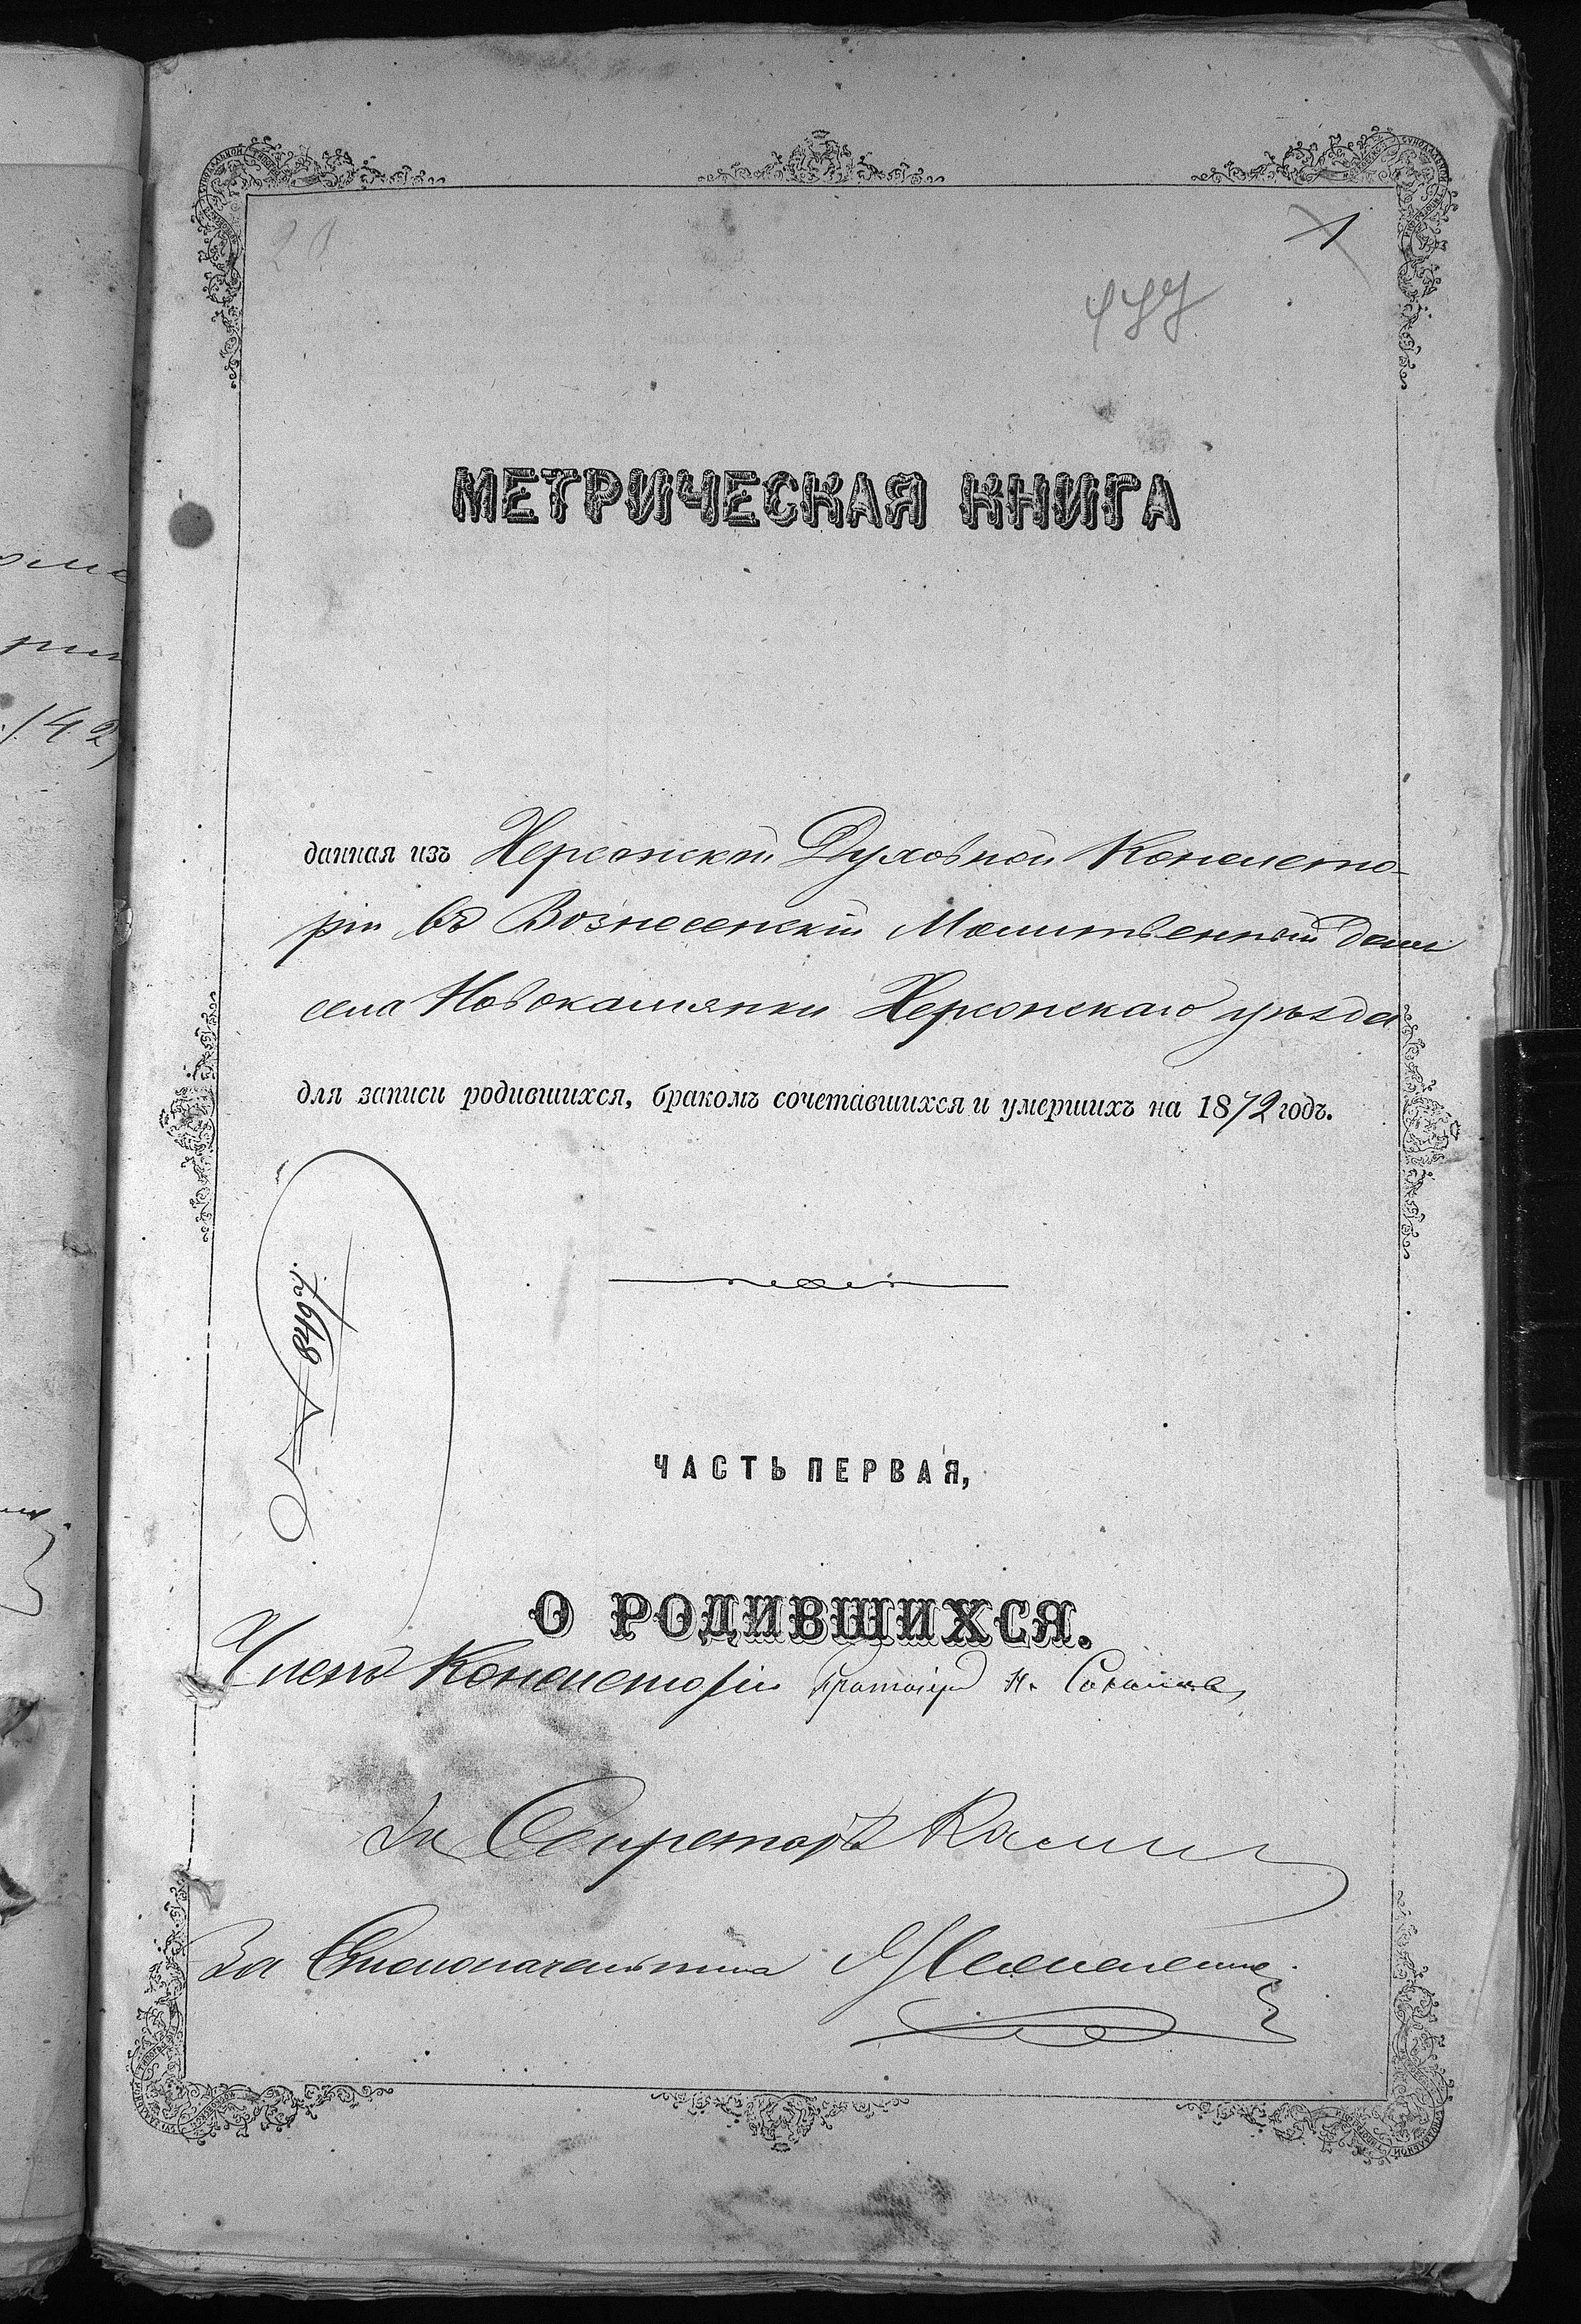 1
477
МЕТРИЧЕСКАЯ КНИГА
данная изъ Херсонской Духовной Консисто-
ріи въ Вознесенскій Молитвенный домъ
села Новокамянки Херсонскаго уѣзда
для записи родившихся, бракомъ сочетавшихся и умершихъ на 1872 годъ.
ЧАСТЬ ПЕРВАЯ,
О РОДИВШИХСЯ.
Членъ Консисторіи Протоіерей Н. Соколов
За Секретаря
За Столоначальника